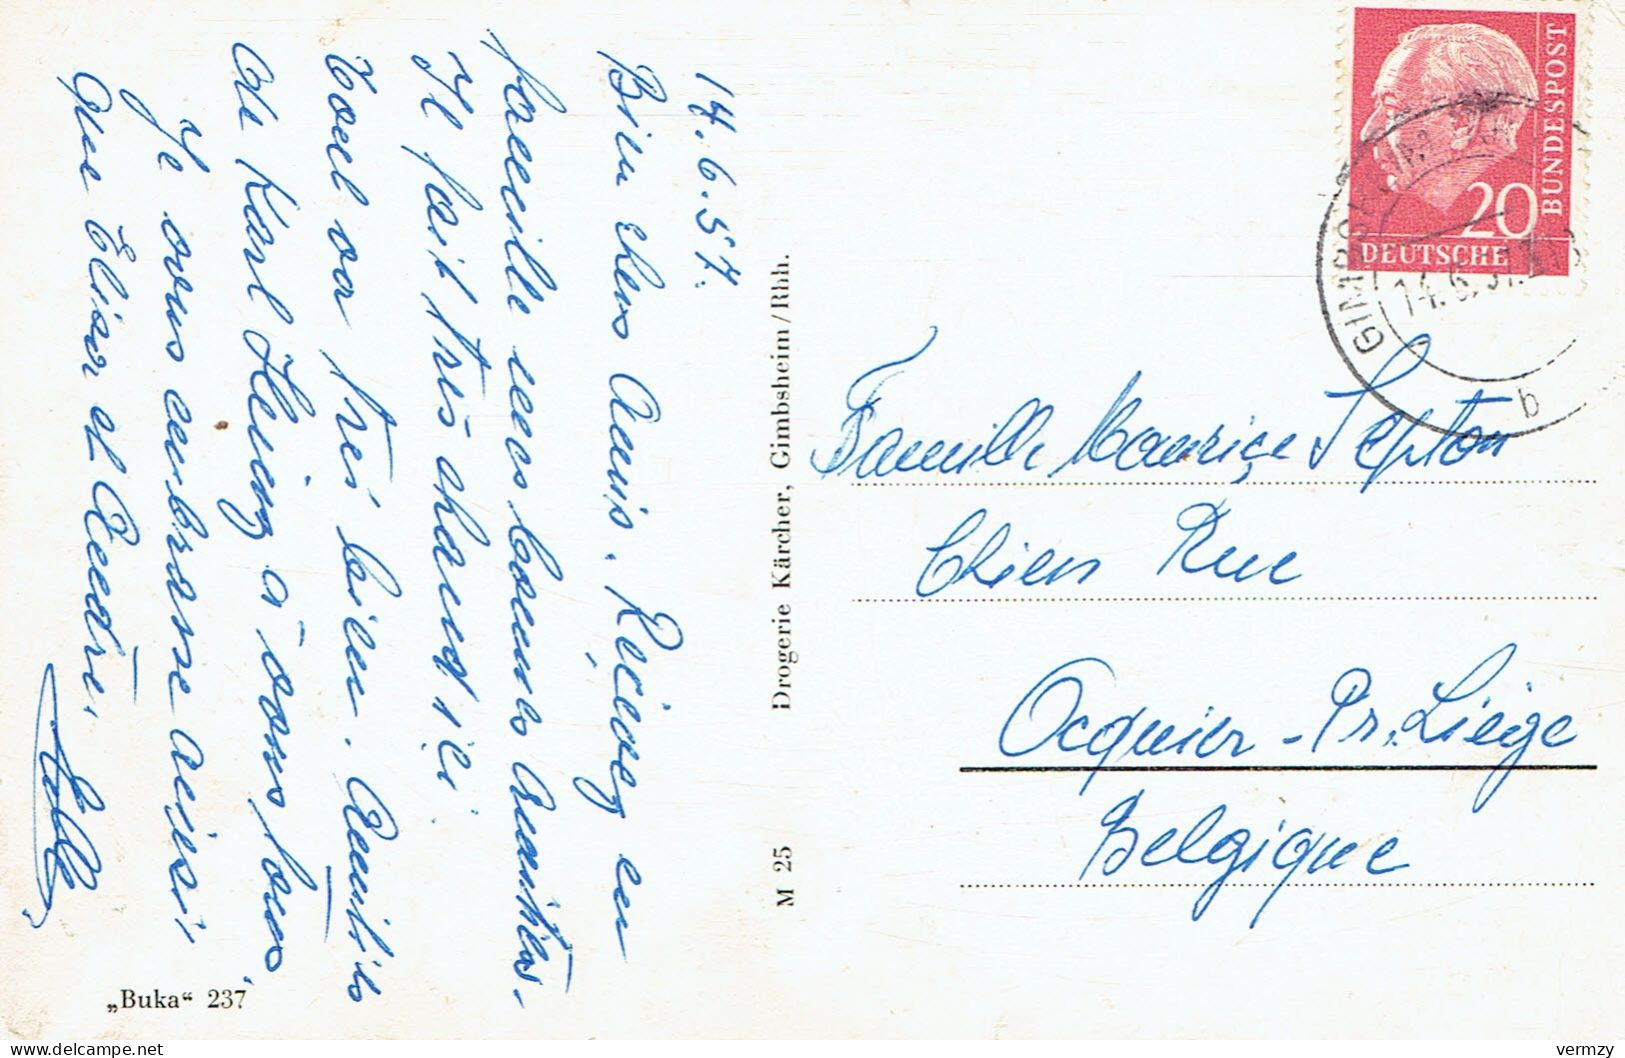 14.6.57.
Bien chers Amis. Reçevez en
famille mes bonnes Amitiés.
Il fait très chaud ici
tout va très bien. Amitiés
de Karl Heinz à vous tous,
Je vous embrasse ainsi,
que Elisa et André.
„Buka“ 237
M 25 Drogerie Kärcher, Gimbsheim/Rhh.
DEUTSCHE
BUNDESPOST
20
14.6.57.
b
Famille Maurice Septon
Chien Rue
Ocquier - Pr. Liège
Belgique
delcampe.net
vermzy